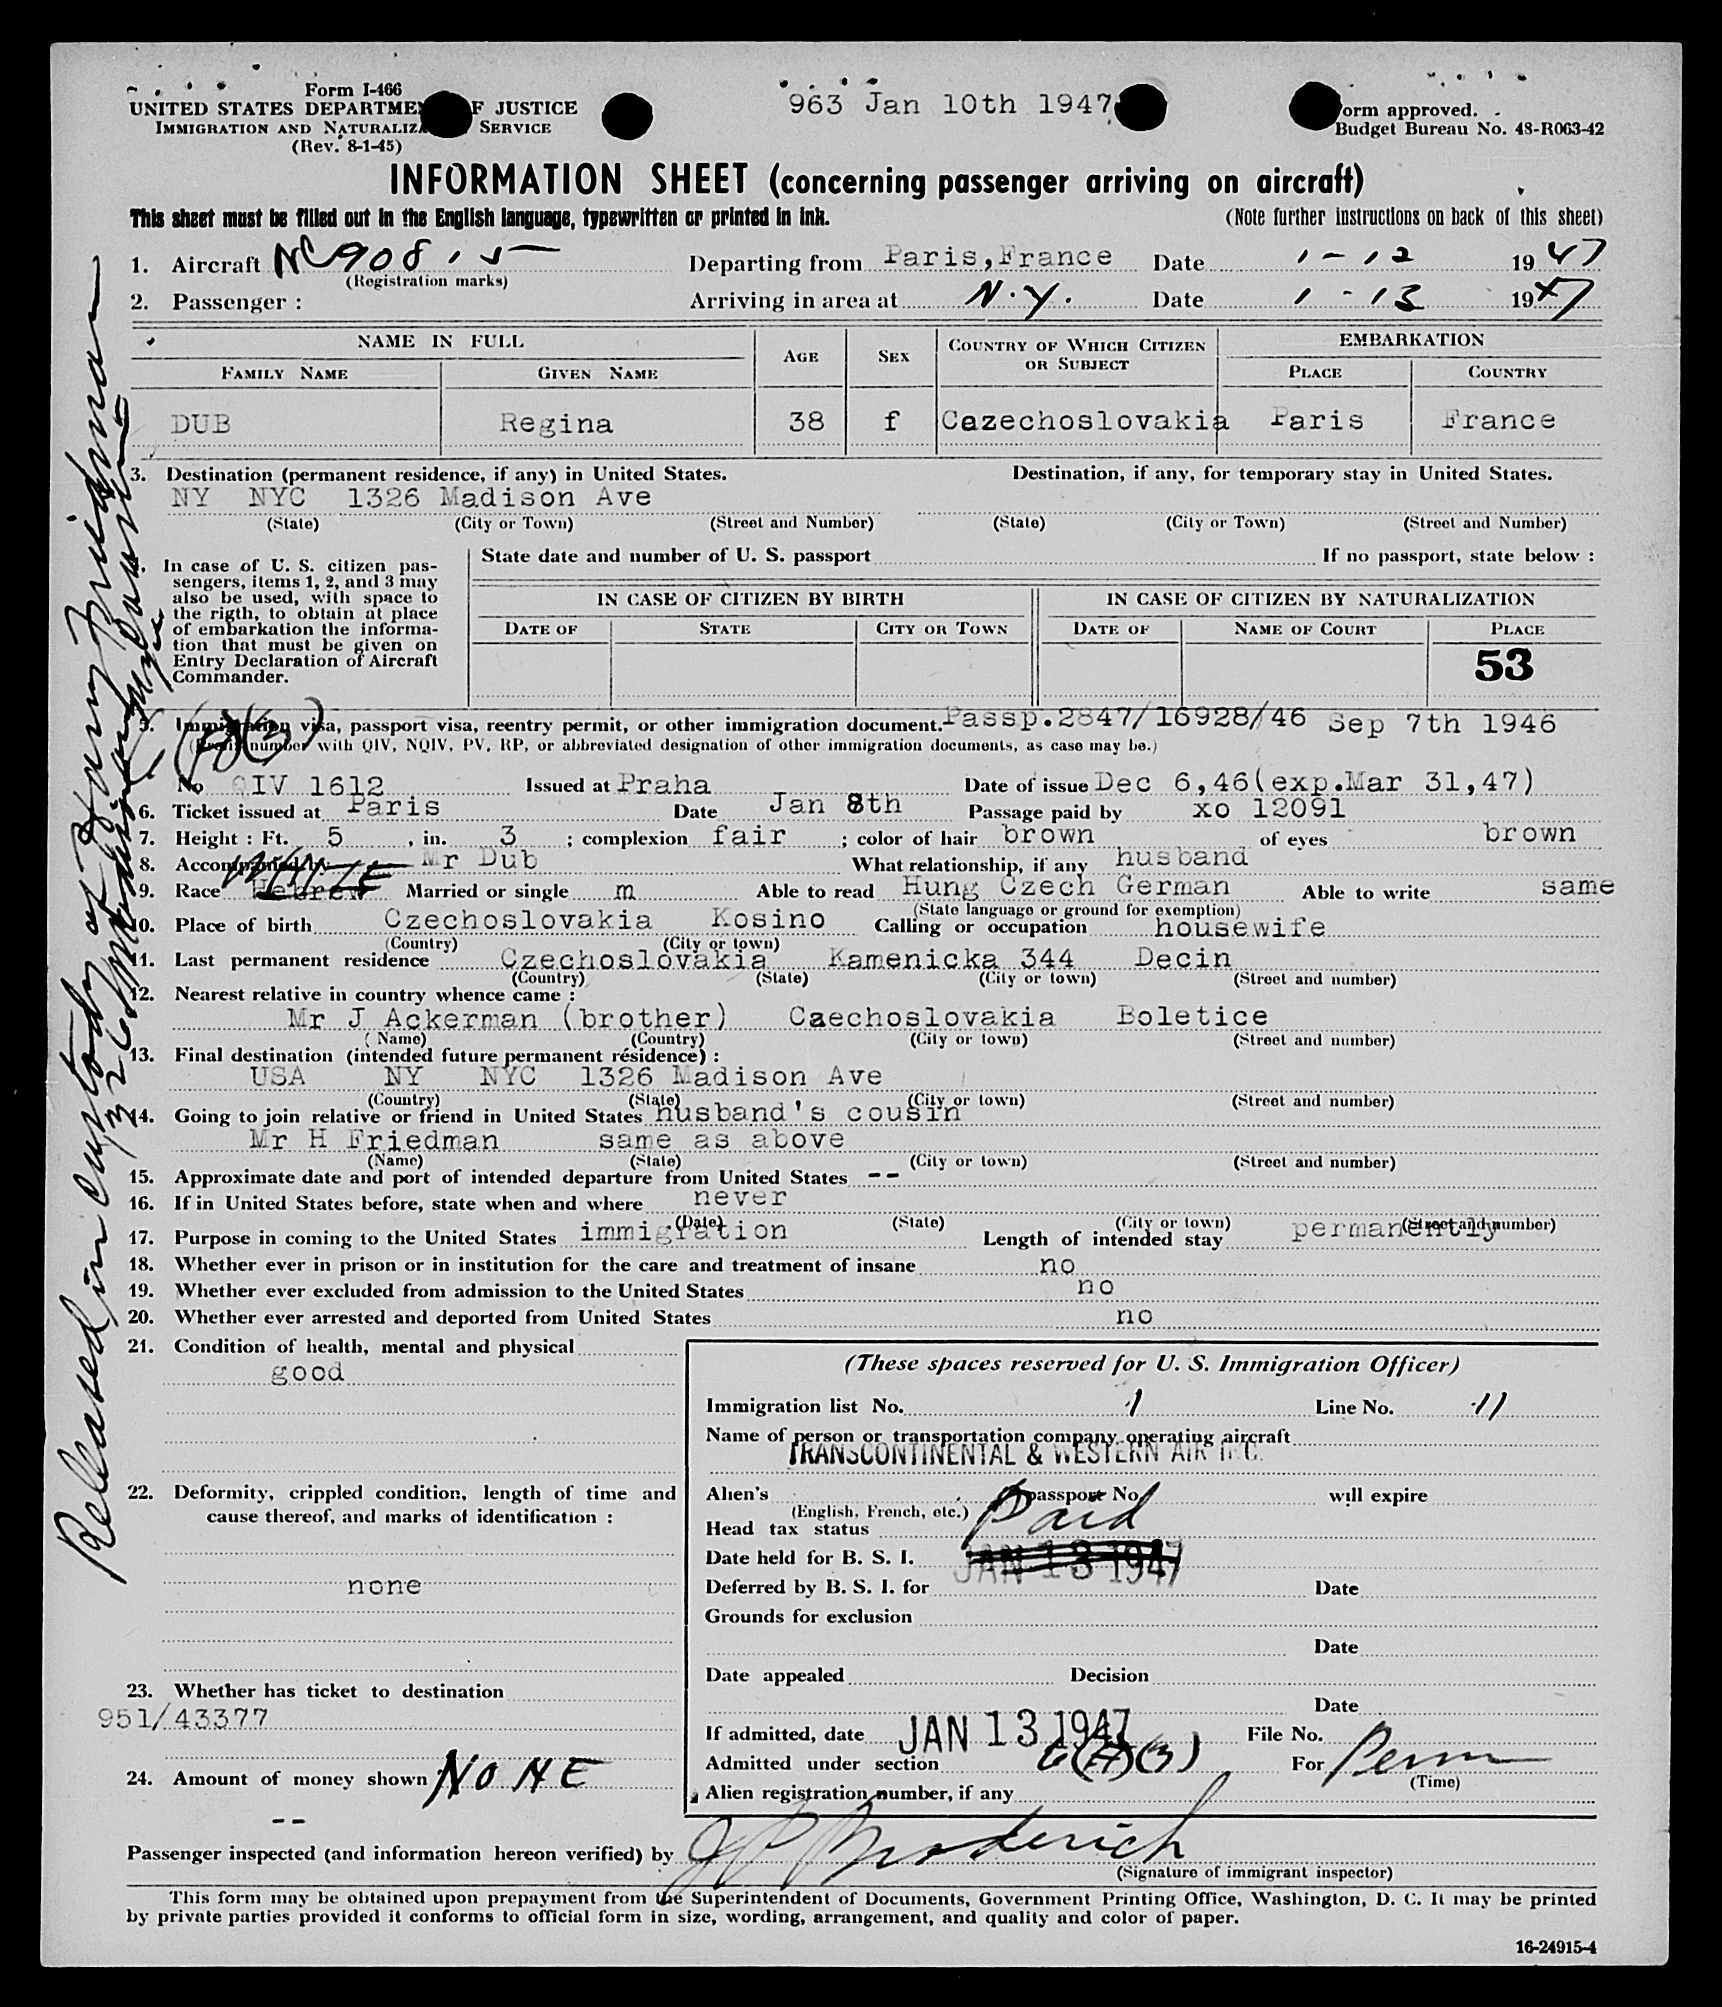 Form I-466
UNITED STATES DEPARTME F JUSTICE
IMMIGRATION AND NATURALIZA SERVICE
(Rev. 8-1-45)
963 Jan 10th 1947
orm approved.
Budget Bureau No. 43-R063-42
INFORMATION SHEET (concerning passenger arriving on aircraft)
This sheet must be filled out in the English language, typewritten or printed in ink.
(Note further instructions on back of this sheet)
1. Aircraft NC 908 15 Departing from Paris,France Date 1-12 1947
(Registration marks)
2. Passenger : Arriving in area at N.Y. Date 1-13 1947
NAME IN FULL AGE SEX COUNTRY OF WHICH CITIZEN OR SUBJECT EMBARKATION
FAMILY NAME GIVEN NAME PLACE COUNTRY
DUB Regina 38 f Cezechoslovakia Paris France
3. Destination (permanent residence, if any) in United States. Destination, if any, for temporary stay in United States.
NY NYC 1326 Madison Ave
(State) (City or Town) (Street and Number) (State) (City or Town) (Street and Number)
In case of U. S. citizen pas-
sengers, items 1, 2, and 3 may
also be used, with space to
the rigth, to obtain at place
of embarkation the informa-
tion that must be given on
Entry Declaration of Aircraft
Commander.
State date and number of U. S. passport If no passport, state below :
IN CASE OF CITIZEN BY BIRTH IN CASE OF CITIZEN BY NATURALIZATION
DATE OF STATE CITY OR TOWN DATE OF NAME OF COURT PLACE
53
5. Immigration visa, passport visa, reentry permit, or other immigration document. Passp.2847/16928/46 Sep 7th 1946
number with QIV, NQIV, PV, RP, or abbreviated designation of other immigration documents, as case may be.)
No QIV 1612 Issued at Praha Date of issue Dec 6,46(exp.Mar 31,47)
6. Ticket issued at Paris Date Jan 8th Passage paid by xo 12091
7. Height : Ft. 5 , in. 3 ; complexion fair ; color of hair brown of eyes brown
8. Accompanied by Mr Dub What relationship, if any husband
9. Race Hebrew WHITE Married or single m Able to read Hung Czech German Able to write same
(State language or ground for exemption)
10. Place of birth Czechoslovakia Kosino Calling or occupation housewife
(Country) (City or town)
11. Last permanent residence Czechoslovakia Kamenicka 344 Decin
(Country) (State) (City or town) (Street and number)
12. Nearest relative in country whence came :
Mr J Ackerman (brother) Czechoslovakia Boletice
(Name) (Country) (City or town) (Street and number)
13. Final destination (intended future permanent residence) :
USA NY NYC 1326 Madison Ave
(Country) (State) (City or town) (Street and number)
14. Going to join relative or friend in United States husband's cousin
Mr H Friedman same as above
(Name) (State) (City or town) (Street and number)
15. Approximate date and port of intended departure from United States --
16. If in United States before, state when and where never
(Date) (State) (City or town) (Street and number)
17. Purpose in coming to the United States immigration Length of intended stay permanently
18. Whether ever in prison or in institution for the care and treatment of insane no
19. Whether ever excluded from admission to the United States no
20. Whether ever arrested and deported from United States no
21. Condition of health, mental and physical
good
22. Deformity, crippled condition, length of time and
cause thereof, and marks of identification :
none
23. Whether has ticket to destination
951/43377
24. Amount of money shown NONE
--
(These spaces reserved for U. S. Immigration Officer)
Immigration list No. 1 Line No. 11
Name of person or transportation company operating aircraft
TRANSCONTINENTAL & WESTERN AIR INC.
Alien's passport No. will expire
(English, French, etc.)
Head tax status Paid
Date held for B. S. I. JAN 13 1947
Deferred by B. S. I. for Date
Grounds for exclusion
Date
Date appealed Decision
Date
If admitted, date JAN 13 1947 File No.
Admitted under section 6(A)(3) For Perm
(Time)
Alien registration number, if any
Passenger inspected (and information hereon verified) by J P Broderich
(Signature of immigrant inspector)
This form may be obtained upon prepayment from the Superintendent of Documents, Government Printing Office, Washington, D. C. It may be printed
by private parties provided it conforms to official form in size, wording, arrangement, and quality and color of paper.
16-24915-4
Released in custody of Harry Friedman
1326 Madison